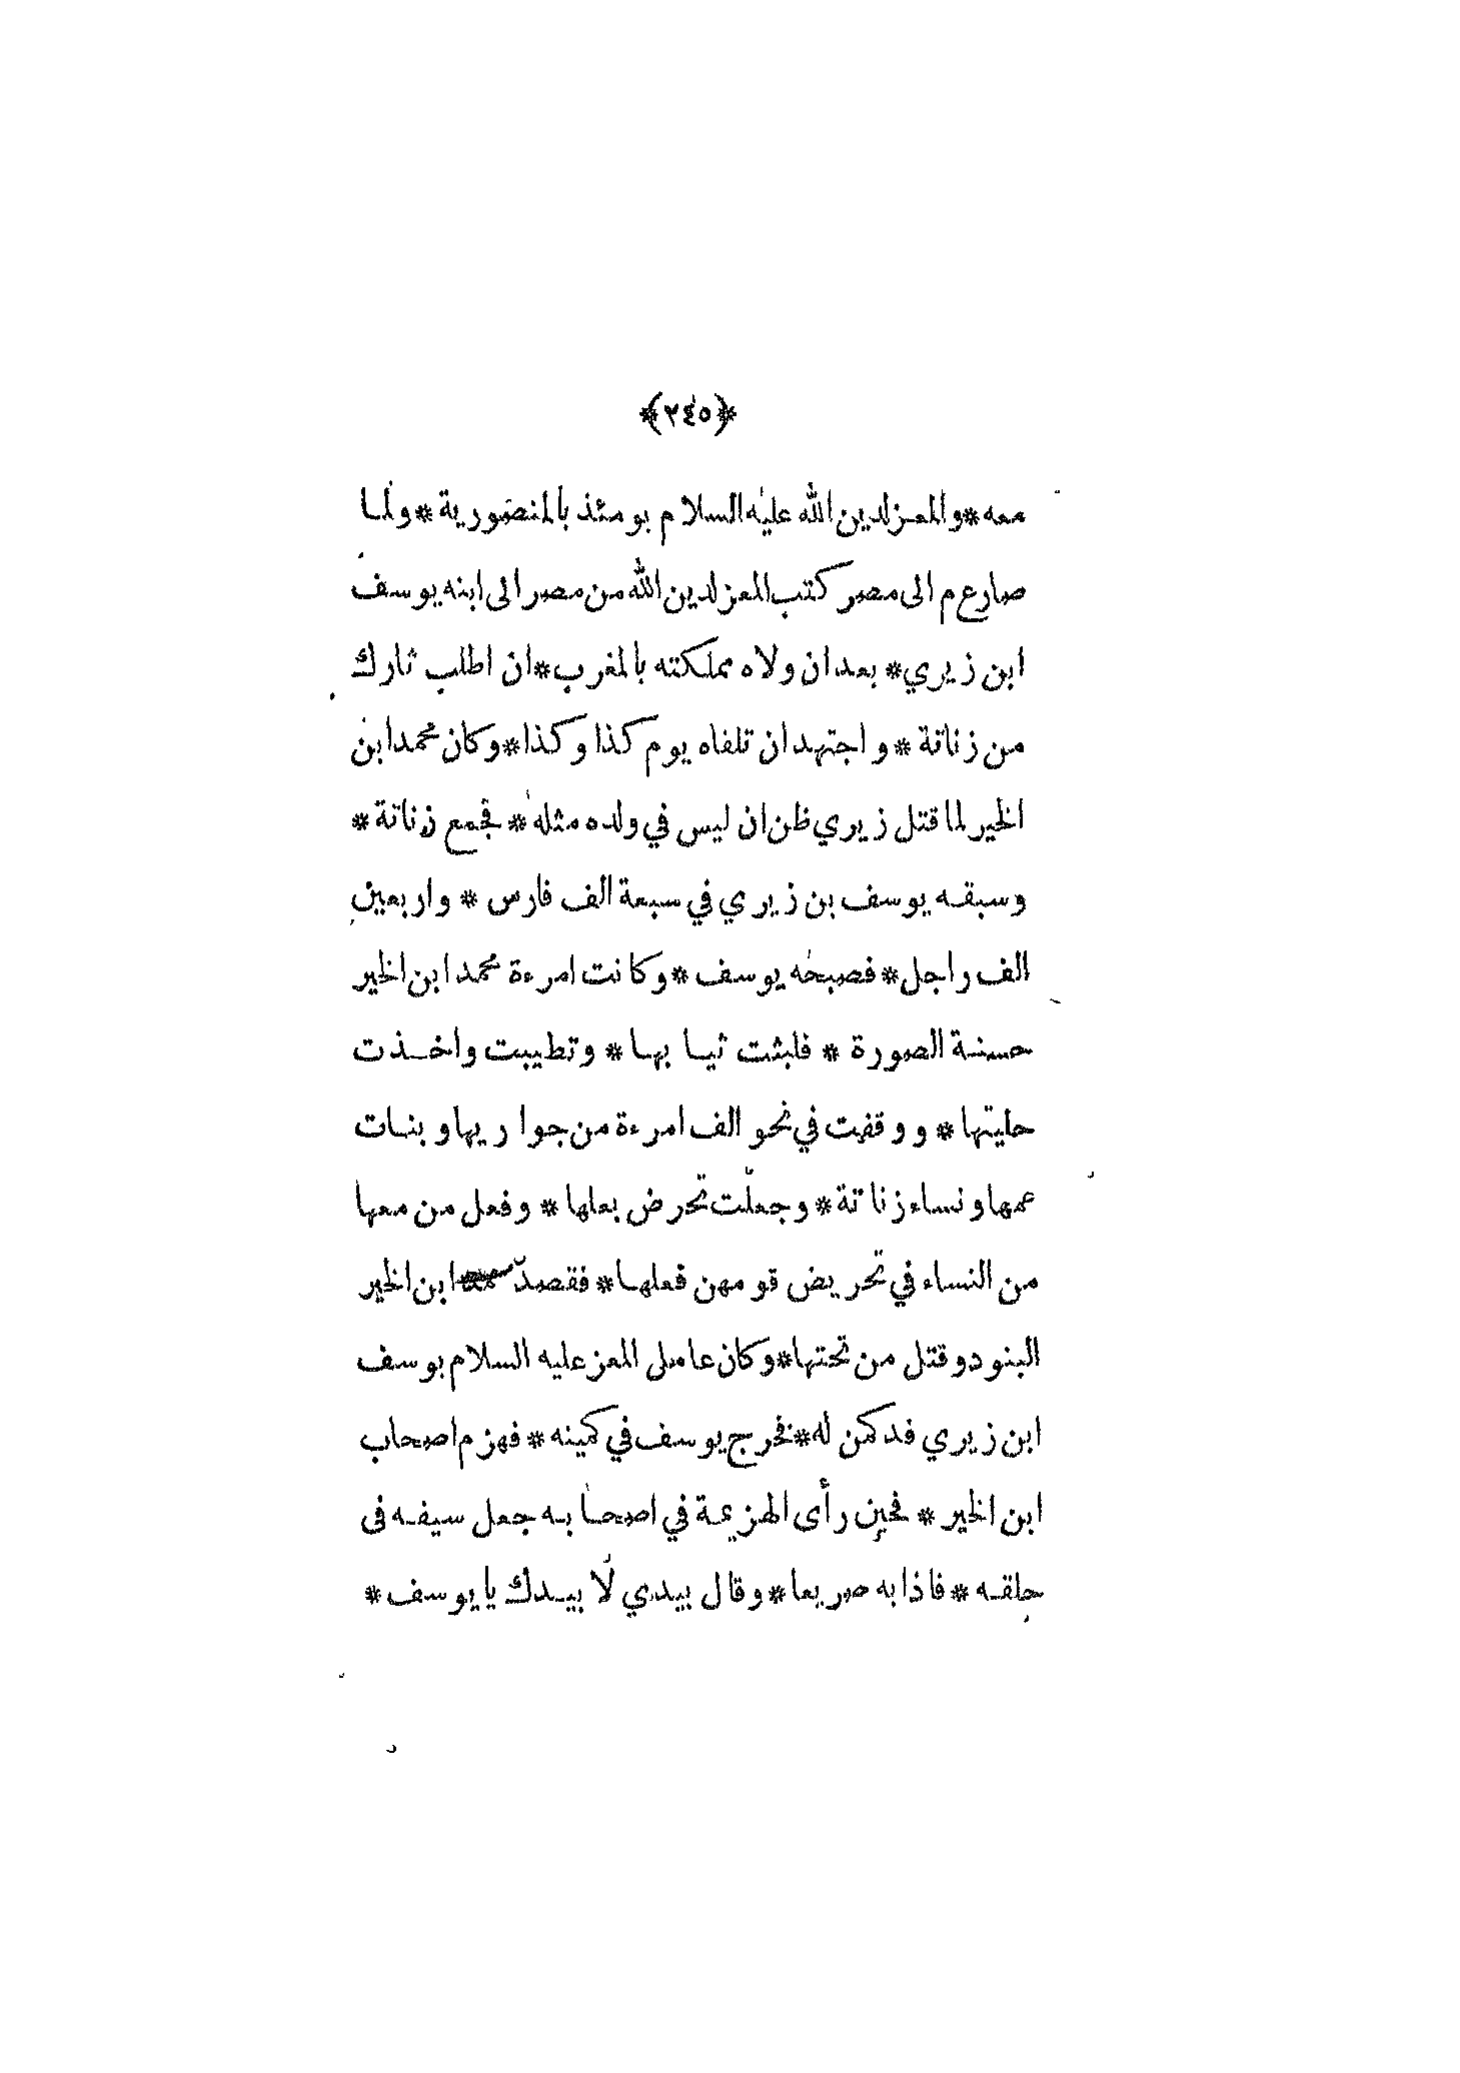 *(٢٤٥)*
معه*والمعزلدين الله عليه السلام يومئذ بالمنصورية*ولما
صارع م الى مصر كتب المعز لدين الله من مصر الى ابنه يوسف
ابن زيري* بعد ان ولاه مملكته بالمغرب*ان اطلب ثارك
من زناتة * و اجتهد ان تلقاه يوم كذا وكذا*وكان محمد ابن
الخير لما قتل زيري ظن ان ليس في ولده مثله* فجمع زناتة *
وسبقه يوسف بن زيري في سبعة الف فارس * واربعين
الف راجل* فصبحه يوسف *وكانت امرءة محمد ابن الخير
حسنة الصورة * فلبثت ثيا بها* وتطيبت واخذت
حليتها* ووقفت في نحو الف امرءة من جوا ريها وبنات
عمها ونساء زناتة* وجعلت تحرض بعلها* وفعل من معها
من النساء في تحريض قو مهن فعلها* فقصد ابن الخير
البنود وقتل من تحتها*وكان عامل المعز عليه السلام يوسف
ابن زيري قد كمن له*فخرج يوسف في كمينه * فهزم اصحاب
ابن الخير * فحين رأى الهزيمة في اصحابه جعل سيفه فى
حلقه * فاذا به صريعا* وقال بيدي لا بيدك يا يوسف *